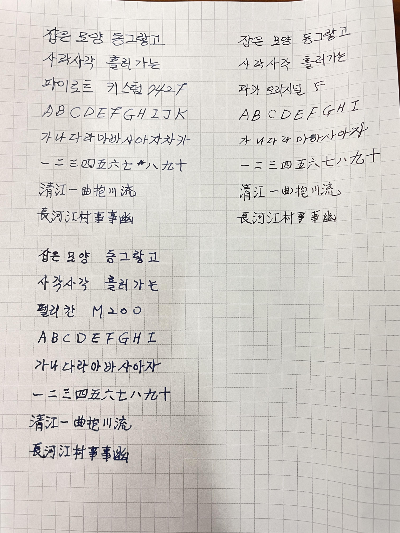 잡은 모양 동그랗고
사각사각 흘러가는
파이로트 커스텀 742F
A B C D E F G H I J K
가나다라마바사아자차카
一二三四五六七八九十
清江一曲抱川流
長河江村事事幽
잡은 모양 동그랗고
사각사각 흘러가는
파카 오리지널 F
A B C D E F G H I
가나다라마바사아자
一二三四五六七八九十
清江一曲抱川流
長河江村事事幽
잡은 모양 동그랗고
사각사각 흘러가는
펠리칸 M200
A B C D E F G H I
가나다라마바사아자
一二三四五六七八九十
清江一曲抱川流
長河江村事事幽